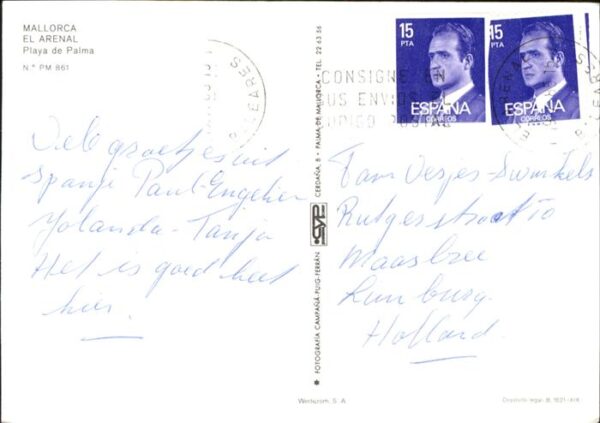 MALLORCA
EL ARENAL
Playa de Palma
N.º PM 861
Vele groetjes uit
Spanje Paul-Engelien
Yolanda-Tanja
Het is goed heet
hier.
15
PTA
ESPAÑA
CORREOS
15
PTA
ESPAÑA
CORREOS
CONSIGNE EN
SUS ENVIOS
CODIGO POSTAL
BALEARES
Fam
Rutgerstraat 10
Maasbree
Limburg.
Holland.
FOTOGRAFIA CAMPAÑÁ-PUIG-FERRÁN
CYP
CERDAÑA, 8 - PALMA DE MALLORCA - TEL. 22 63 56